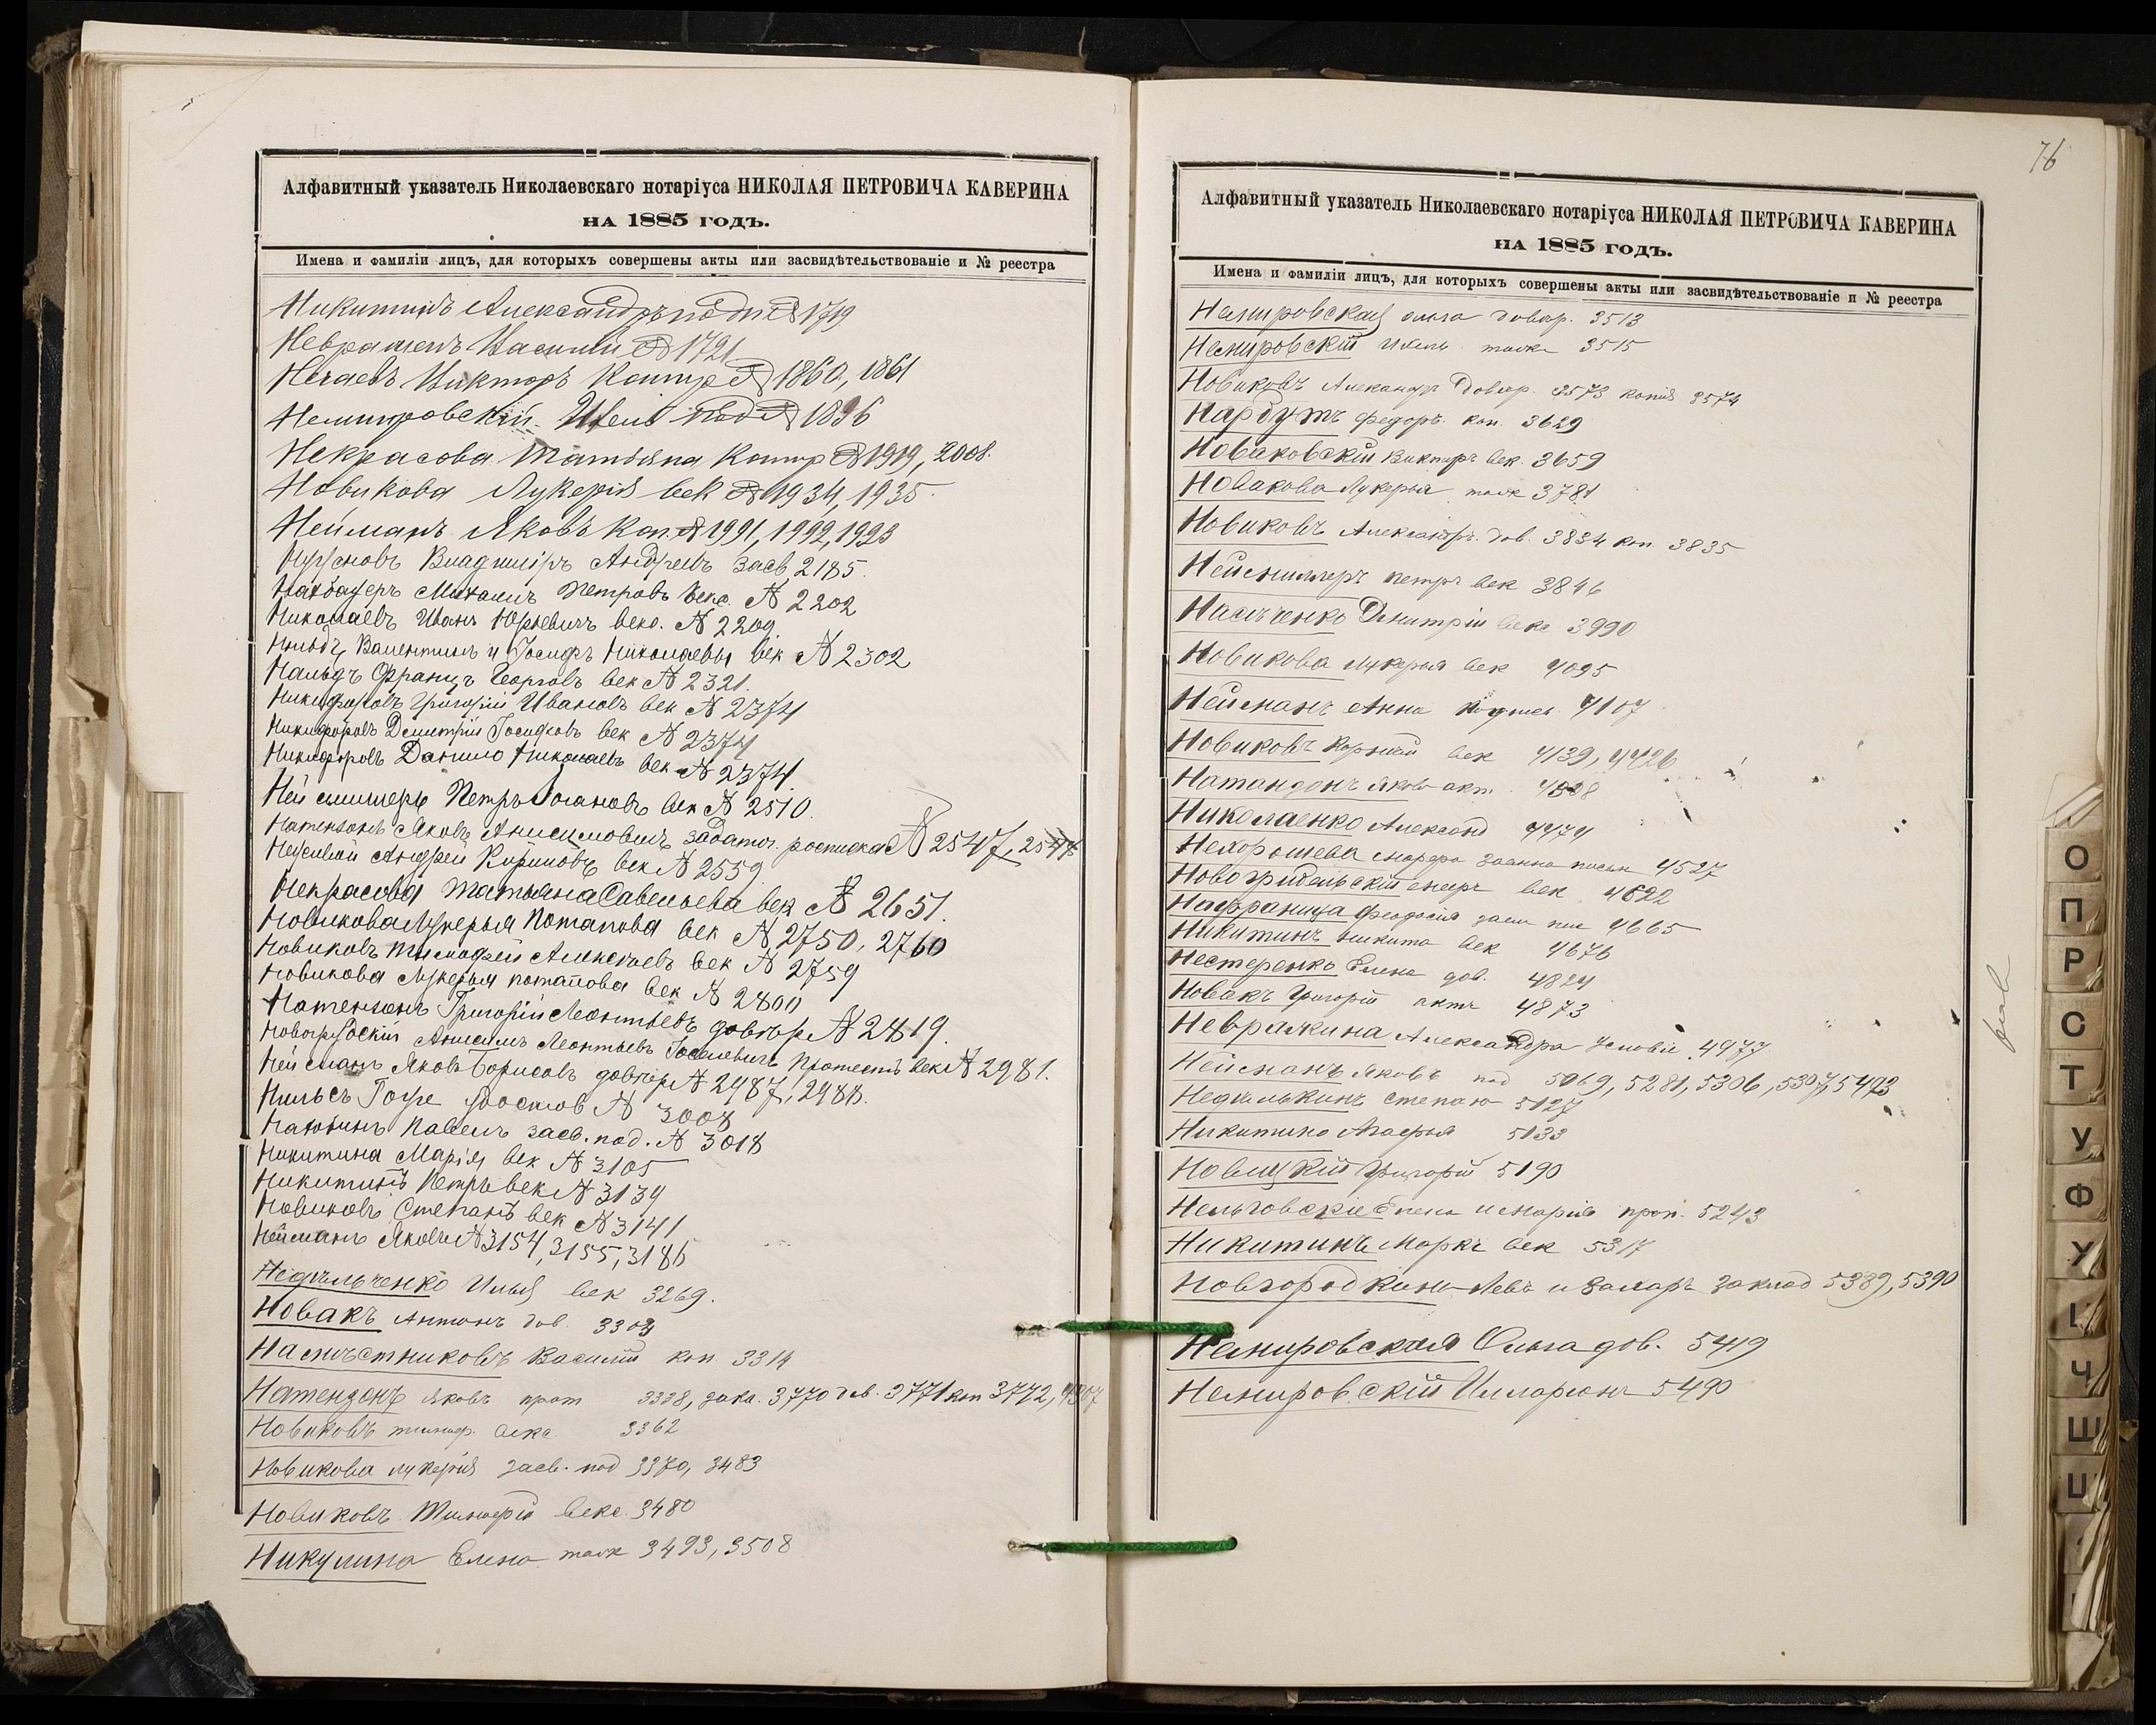 Алфавитный указатель Николаевскаго нотаріуса НИКОЛАЯ ПЕТРОВИЧА КАВЕРИНА
НА 1885 ГОДЪ.
Имена и фамиліи лицъ, для которыхъ совершены акты или засвидѣтельствованіе и № реестра
Никитинъ Александръ подп № 1719
Василий № 1721
Нечаевъ Викторъ Контр № 1860, 1861
Немировскій под № 1896
Некрасова Татьяна Контр № 1919, 2008.
Новикова Лукерія век № 1934, 1935.
Нейманъ Яковъ Коп. № 1991, 1992, 1993
Владиміръ Андреевъ засв. 2185.
Михаилъ Петровъ векс. № 2202
Николаевъ Иванъ Юрьевичъ векс. № 2209.
Валентинъ и Іосифъ Николаевы век № 2302
Нальдъ Францъ Георговъ век № 2321.
Никифоровъ Григорій Ивановъ век № 2374
Никифоровъ Дмитрій Іосифовъ век № 2374
Никифоровъ Данило Николаевъ век № 2374.
Петръ Іогановъ век № 2510.
Натензонъ Яковъ Анисимовичъ задаточ. росписка № 2547,
Андрей Кириловъ век № 2559
Некрасова Татьяна Савельева век № 2651.
Новикова Лукерья Потапова век № 2750, 2760
Новиковъ Тимофей Алексѣевъ век № 2759
Новикова Лукерья Потапова век № 2800
Натензонъ Григорій Леонтьевъ довѣр № 2819.
Новогрудскій Анисимъ Леонтьевъ Протестъ век № 2981.
Нейманъ Яковъ Борисовъ довѣр № 2987, 2988.
Нильсъ № 3008
Павелъ засв. под. № 3018
Никитина Марія век № 3105
Никитинъ Петръ век № 3139
Новиковъ Степанъ век № 3141
Нейманъ Яковъ № 3154, 3155, 3186
Недѣльченко Илья век 3269.
Новакъ Антонъ дов.
Намѣстниковъ Василій коп. 3314
Натензонъ Яковъ прот 3338, закл. 3770 дов. 3771 коп 3772,
Новиковъ тимоф. векс. 3362
Новикова лукерія засв. под 3370, 3483
Новиковъ Тимофей векс. 3480
Никулина Елена 3493, 3508
76
Алфавитный указатель Николаевскаго нотаріуса НИКОЛАЯ ПЕТРОВИЧА КАВЕРИНА
НА 1885 ГОДЪ.
Имена и фамиліи лицъ, для которыхъ совершены акты или засвидѣтельствованіе и № реестра
Немировская ольга довѣр. 3513
Немировскій 3515
Новиковъ Александръ Довѣр. 3573 копія 3574
Нарбутъ федоръ. коп. 3629
Новаковскій Викторъ век. 3659
Новакова Лукерья 3781
Новиковъ Александръ. дов. 3834 коп. 3835
петръ век 3846
Дмитрій векс 3990
Новикова Лукерья век 4095
Нейманъ Анна 4107
Новиковъ Корній век 4139, 4426
Натандонъ Яковъ акт.
Николаенко Александ 4474
Нехорошева марфа 4527
век 4622
феодосія 4665
Никитинъ никита век 4676
Нестеренко Елена дов. 4824
Новакъ Григорій актъ 4873
Невражина Александра условіе 4977
Нейманъ Яковъ под 5069, 5281, 5306, 5307, 5493
Недѣлькинъ степанъ 5127
Никитина 5133
Новицкій Григорій 5190
Елена и Марія проп. 5243
Никитинъ Маркъ век 5317
Левъ и Захаръ заклад 5389, 5390
Немировская Ольга дов. 5419
Немировскій Илларіонъ 5490
О
П
Р
С
Т
У
Ф
Ч
Ш